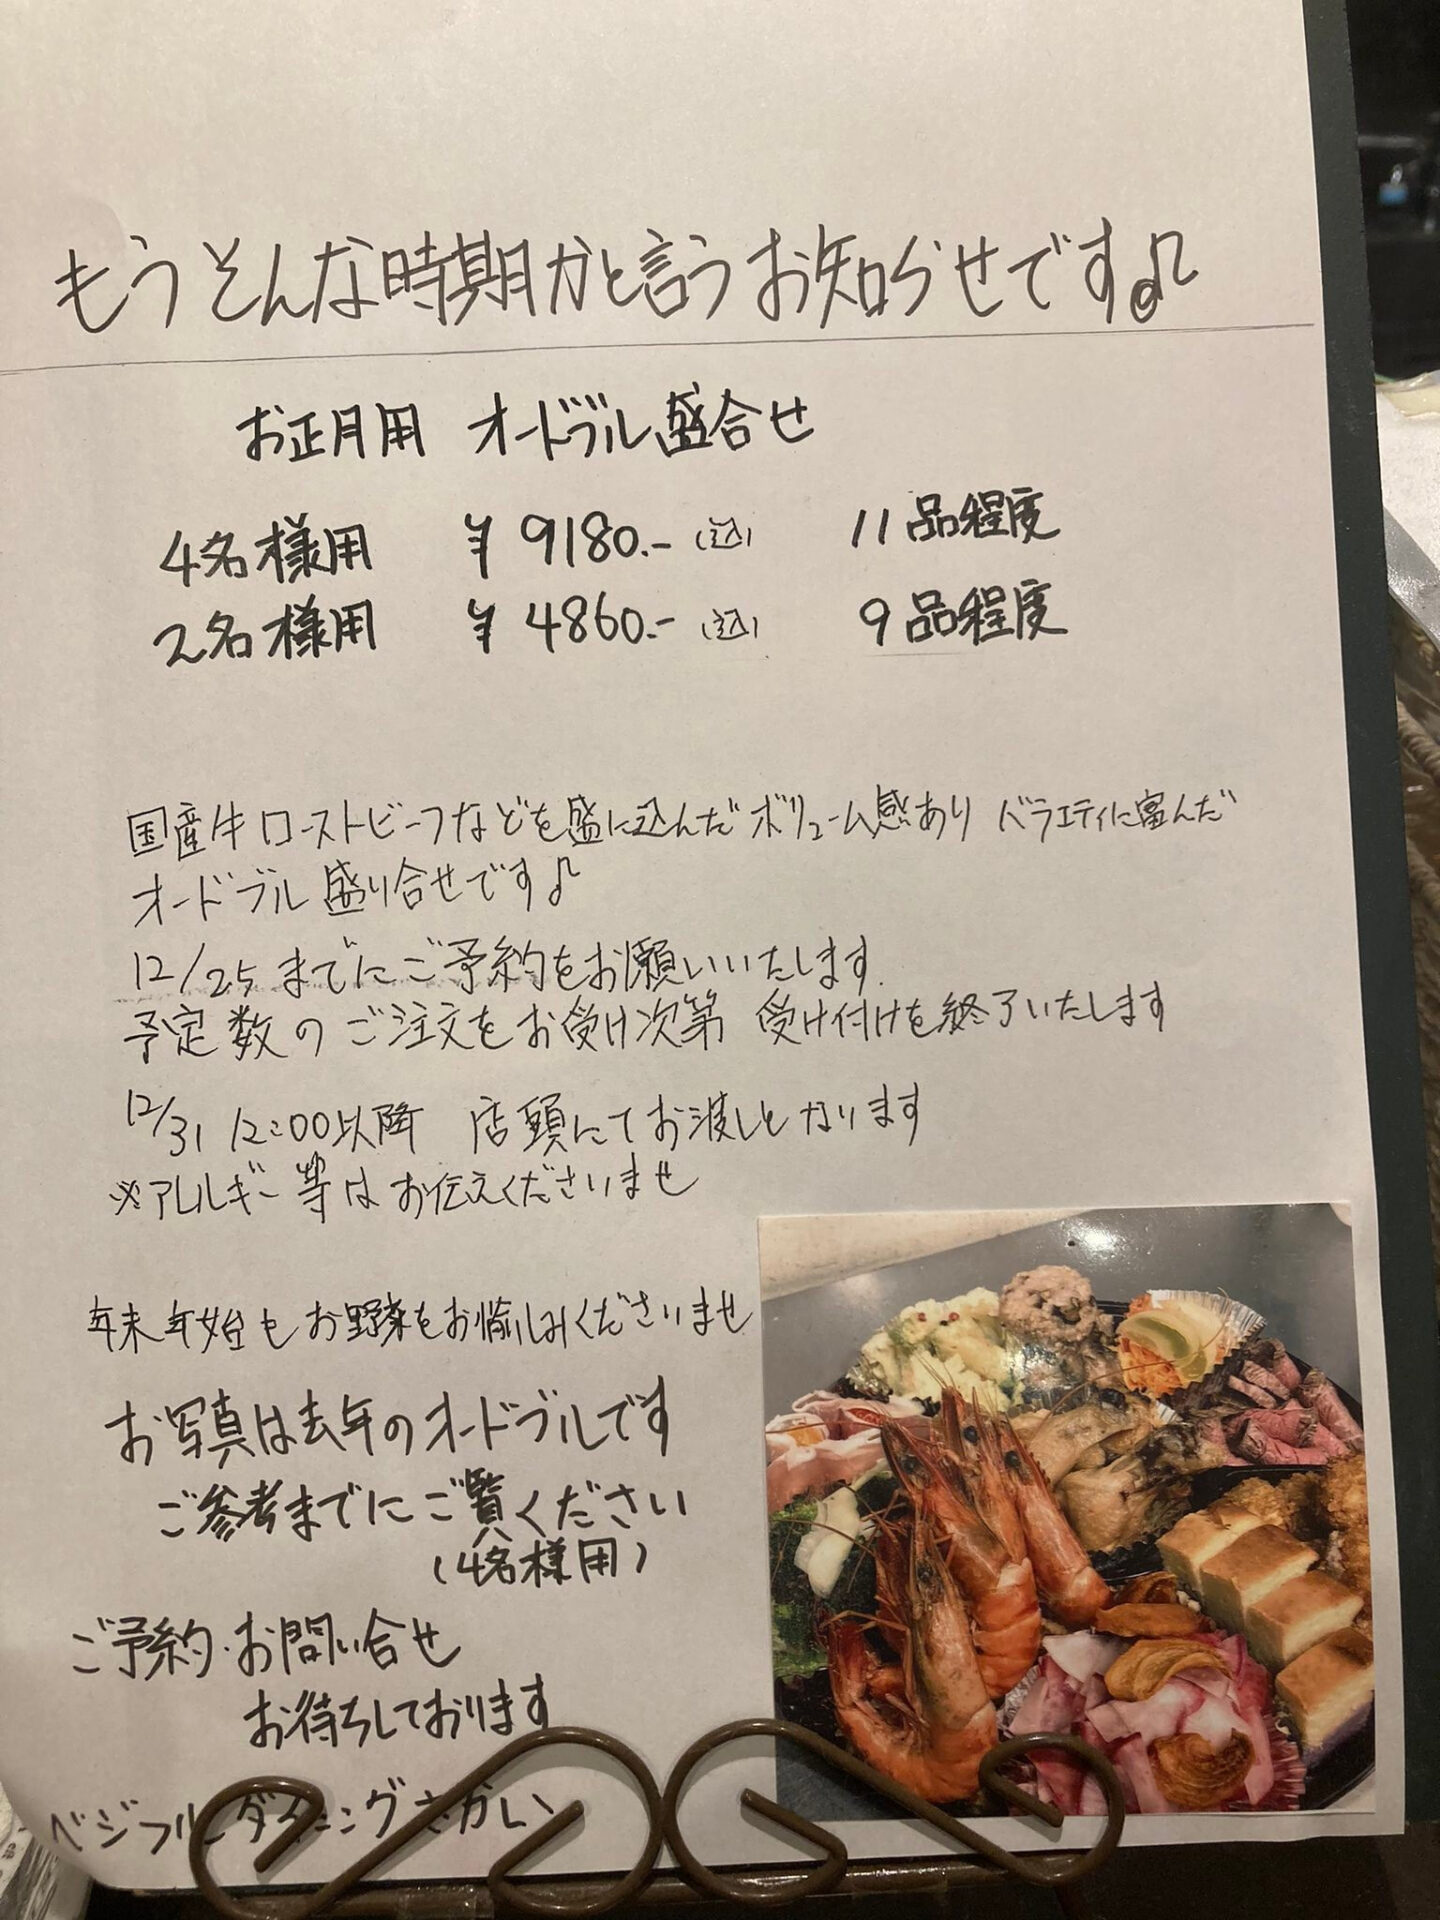 もうそんな時期かと言うお知らせです♪
お正月用 オードブル盛合せ
4名様用 ¥9180.-(込) 11品程度
2名様用 ¥4860.-(込) 9品程度
国産牛ローストビーフなどを盛に込んだボリューム感あり バラエティに富んだ
オードブル 盛り合せです♪
12/25までにご予約をお願いいたします
予定数のご注文をお受け次第 受け付けを終了いたします
12/31 12:00以降 店頭にてお渡しとなります
※アレルギー等はお伝えくださいませ
年末年始もお野菜をお愉しみくださいませ
お写真は去年のオードブルです
ご参考までにご覧ください
(4名様用)
ご予約・お問い合せ
お待ちしております
ベジフルーダイニングさかい